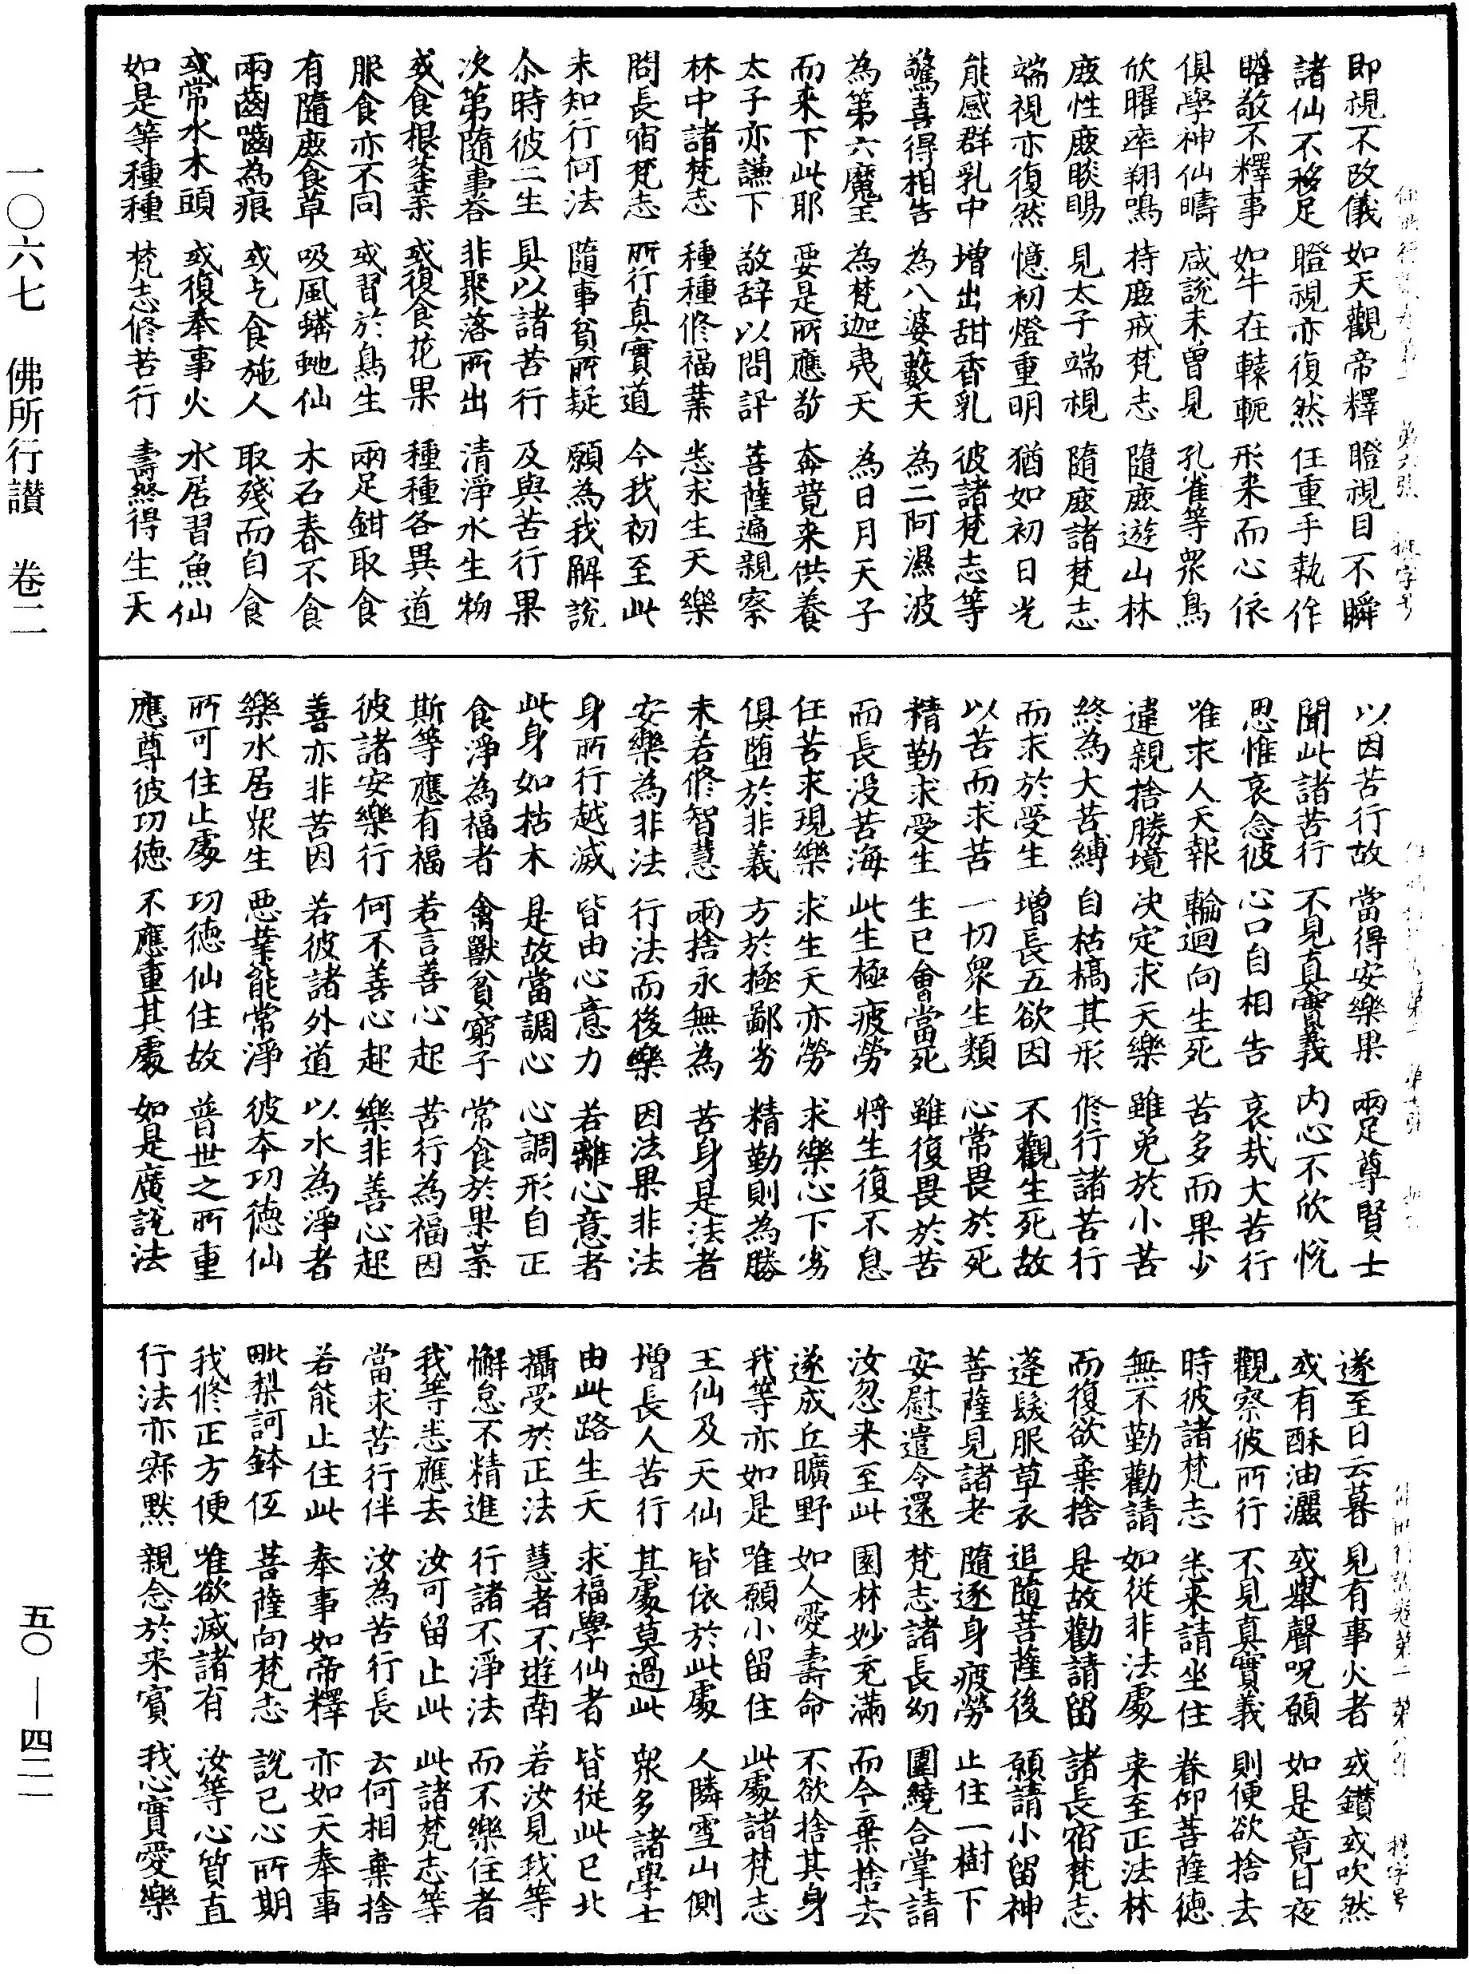 即視不改儀 如天觀帝釋 瞪視目不瞬
諸仙不移足 瞪視亦復然 任重手執作
瞻敬不釋事 如牛在轅軛 形来而心依
俱學神仙疇 咸說未曾見 孔雀等衆鳥
欣曜率翔鳴 持鹿戒梵志 隨鹿遊山林
鹿性鹿睒賜 見太子端視 隨鹿諸梵志
端視亦復然 憶初燈重明 猶如初日光
能感群乳中 增出甜香乳 彼諸梵志等
驚喜得相告 為八婆藪天 為二阿濕波
為第六魔王 為梵迦夷天 為日月天子
而来下此耶 要是所應敬 奔競来供養
太子亦謙下 敬辞以問訊 菩薩遍親察
林中諸梵志 種種修福業 悉求生天樂
問長宿梵志 所行真實道 今我初至此
未知行何法 隨事貧所疑 願為我解說
尒時彼二生 具以諸苦行 及與苦行果
次第隨事荅 非聚落所出 清淨水生物
或食根莖葉 或復食花果 種種各異道
服食亦不同 或習於鳥生 兩足鉗取食
有隨鹿食草 吸風蟒虵仙 木石舂不食
兩齒齧為痕 或乞食施人 取殘而自食
或常水木頭 或復奉事火 水居習魚仙
如是等種種 梵志修苦行 壽終得生天
以因苦行故 當得安樂果 兩足尊賢士
聞此諸苦行 不見真實義 内心不欣悅
思惟哀念彼 心口自相告 哀哉大苦行
唯求人天報 輪迴向生死 苦多而果少
違親捨勝境 决定求天樂 雖免於小苦
終為大苦縛 自枯槁其形 修行諸苦行
而求於受生 增長五欲因 不觀生死故
以苦而求苦 一切衆生類 心常畏於死
精勤求受生 生已會當死 雖復畏於苦
而長没苦海 此生極疲勞 将生復不息
任苦求現樂 求生天亦勞 求樂心下劣
俱墮於非義 方於極鄙劣 精勤則為勝
未若修智慧 兩捨永無為 苦身是法者
安樂為非法 行法而後樂 因法果非法
身所行越滅 皆由心意力 若離心意者
此身如枯木 是故當調心 心調形自正
食淨為福者 禽獸貧窮子 常食於果葉
斯等應有福 若言善心起 苦行為福因
彼諸安樂行 何不善心起 樂非善心起
善亦非苦因 若彼諸外道 以水為淨者
樂水居衆生 惡業能常淨 彼本功德仙
所可住止處 功德仙住故 普世之所重
應尊彼功德 不應重其處 如是廣說法
遂至日云暮 見有事火者 或鑽或吹然
或有酥油灑 或舉聲呪願 如是竟日夜
觀察彼所行 不見真實義 則便欲捨去
時彼諸梵志 悉来請坐住 眷仰菩薩德
無不勤勸請 如從非法處 来至正法林
而復欲棄捨 是故勸請留 諸長宿梵志
蓬髮服草衣 追隨菩薩後 願請小留神
菩薩見諸老 隨逐身疲勞 止住一樹下
安慰遣令還 梵志諸長幼 圍繞合掌請
汝忽来至此 園林妙充滿 而今棄捨去
遂成丘曠野 如人愛壽命 不欲捨其身
我等亦如是 唯願小留住 此處諸梵志
王仙及天仙 皆依於此處 人隣雪山側
增長人苦行 其處莫過此 衆多諸學士
由此路生天 求福學仙者 皆從此已北
攝受於正法 慧者不遊南 若汝見我等
懈怠不精進 行諸不淨法 而不樂住者
我等悉應去 汝可留止此 此諸梵志等
當求苦行伴 汝為苦行長 云何相棄捨
若能止住此 奉事如帝釋 亦如天奉事
毗梨訶鉢低 菩薩向梵志 說己心所期
我修正方便 唯欲滅諸有 汝等心質直
行法亦寂默 親念於来賓 我心實愛樂
一〇六七 佛所行讚 卷二
五〇—四二一